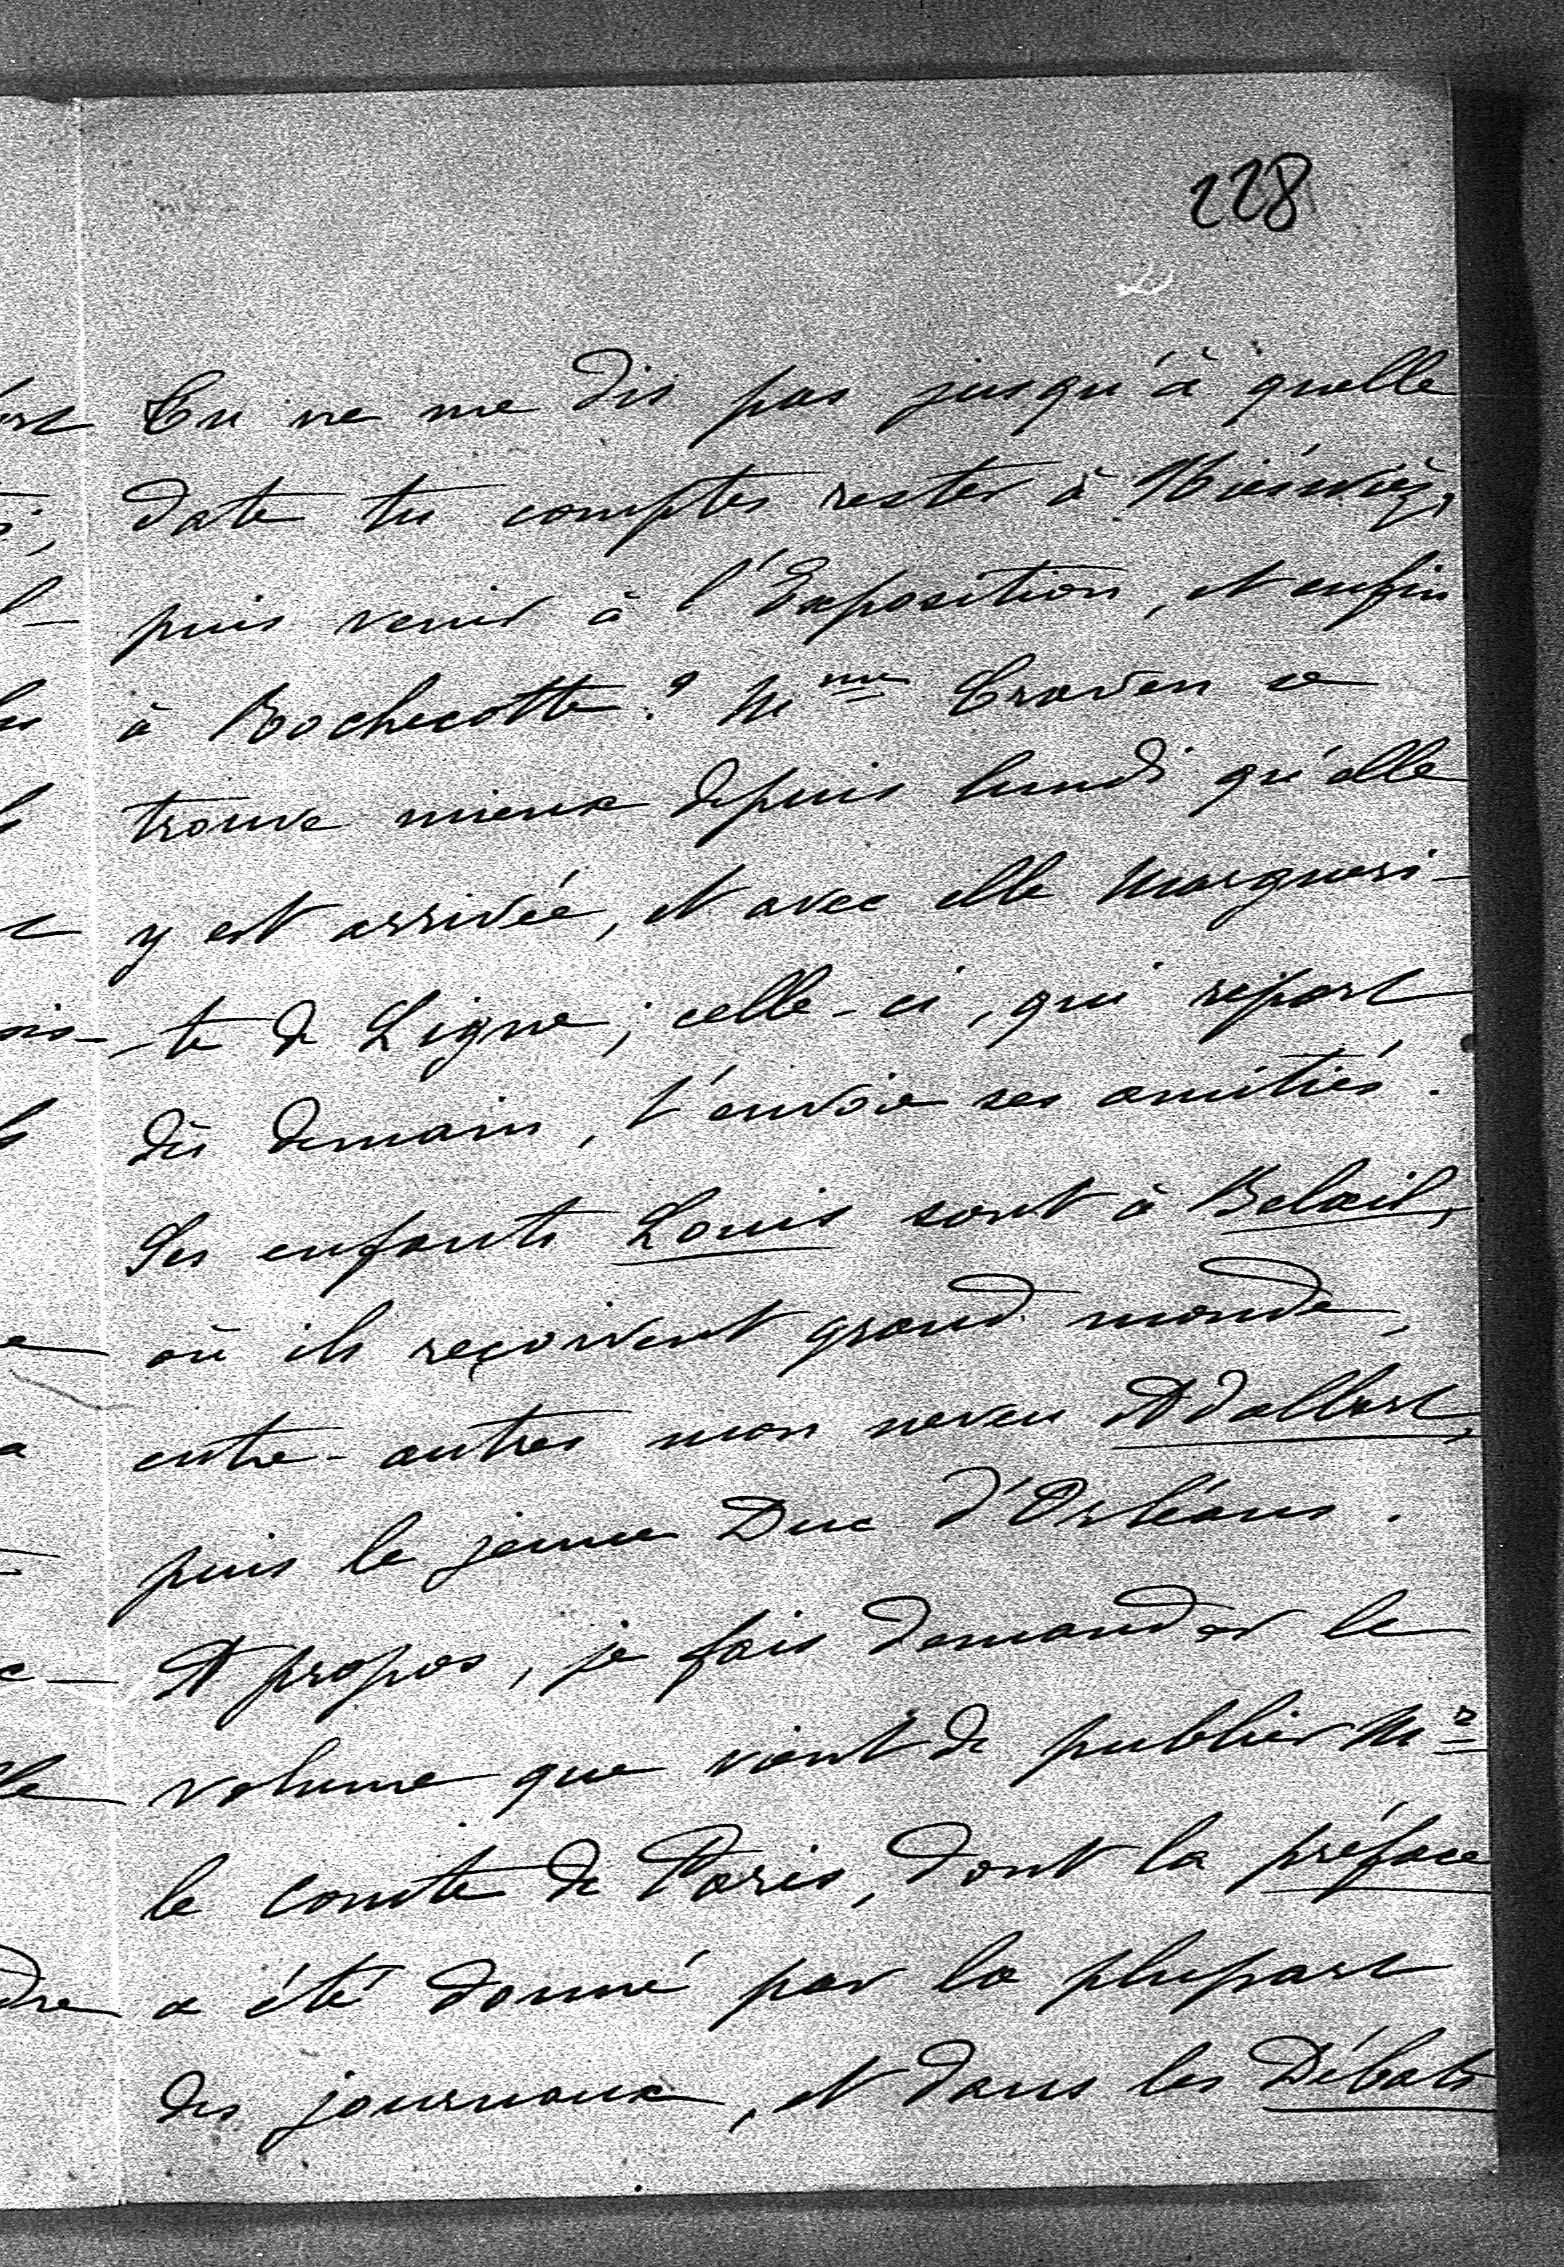 228
Tu ne me dis pas jusqu'à quelle
date tu comptes rester à Nieświéz,
puis venir à l'Exposition, et enfin
à Rochecotte? M<sup>me</sup> Craven se
trouve mieux depuis lundi qu'elle
y est arrivée, et avec elle Margueri-
-te de Ligne; celle-ci, qui repart
dès demain, t'envoie ses amitiés.
Ses enfants Louis sont à Belœil,
où ils reçoivent grand monde,
entre-autres mon neveu Adalbert,
puis le jeune Duc d'Orléans.
A propos, je fais demander le
volume que vient de publier M<sup>r</sup>
le comte de Paris, dont la préface
a été donné par la plupart
des journaux, et dans les Débats